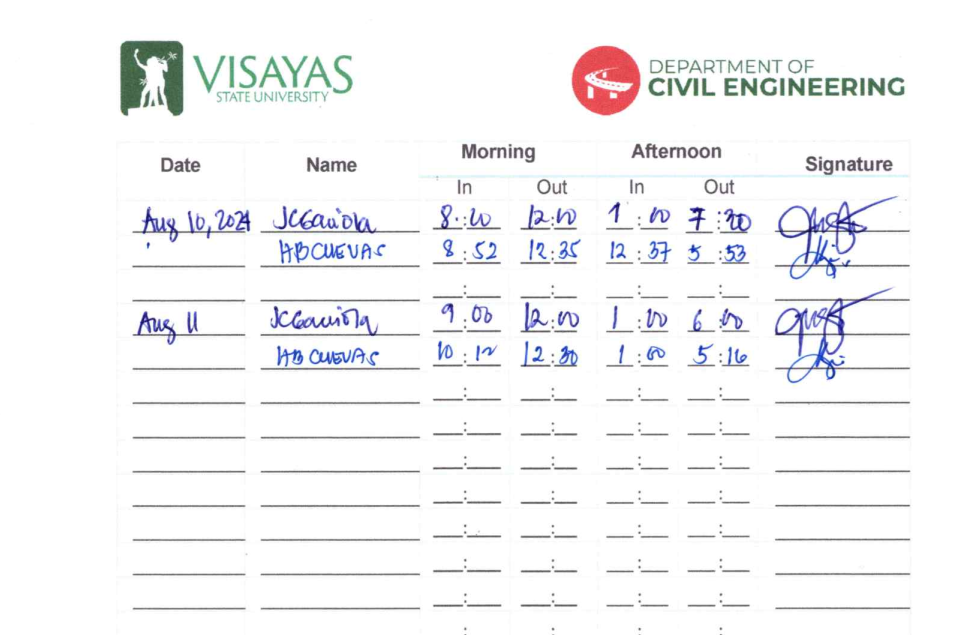 VISAYAS
STATE UNIVERSITY
DEPARTMENT OF
CIVIL ENGINEERING
Date Name Morning Afternoon Signature
In Out In Out
Aug 10, 2024 JCGaviola 8:20 12:00 1:00 7:30
HBCUEVAS 8:52 12:35 12:37 5:53
Aug 11 JCGaviola 9:00 12:00 1:00 6:00
HB CUEVAS 10:12 12:30 1:00 5:16